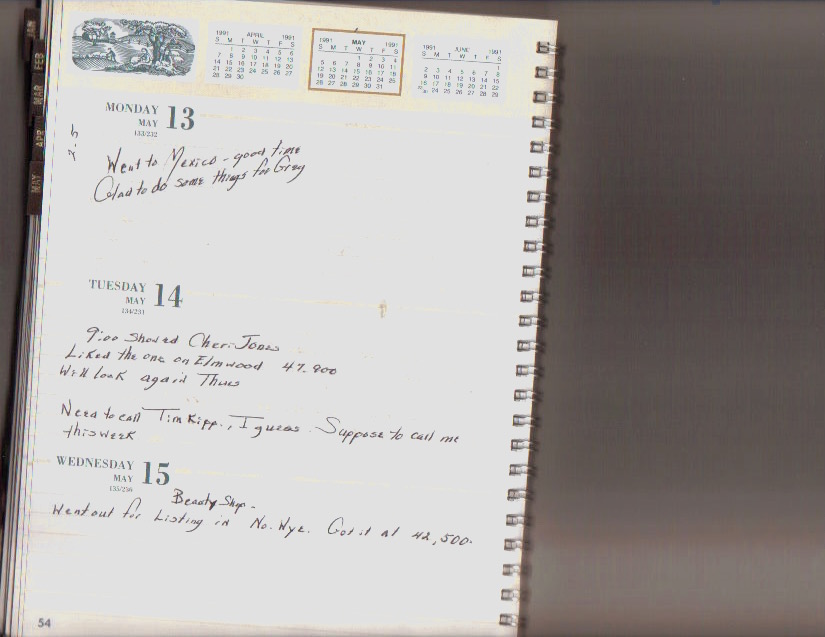 JAN
FEB
MAR
APR
MAY
1991 APRIL 1991
S M T W T F S
1 2 3 4 5 6
7 8 9 10 11 12 13
14 15 16 17 18 19 20
21 22 23 24 25 26 27
28 29 30
1991 MAY 1991
S M T W T F S
1 2 3 4
5 6 7 8 9 10 11
12 13 14 15 16 17 18
19 20 21 22 23 24 25
26 27 28 29 30 31
1991 JUNE 1991
S M T W T F S
1
2 3 4 5 6 7 8
9 10 11 12 13 14 15
16 17 18 19 20 21 22
23/30 24 25 26 27 28 29
MONDAY 13
MAY
133/232
2-5
Went to Mexico - good time
Glad to do some things for Greg
TUESDAY 14
MAY
134/231
9:00 Showed Cheri Jones
Liked the one on Elmwood 47.900
Will look again Thurs
Need to call Tim Kipp., I guess. Suppose to call me
this week
WEDNESDAY 15
MAY
135/230
Beauty Shop -
Went out for Listing in No. Nye. Got it at 42,500.
54